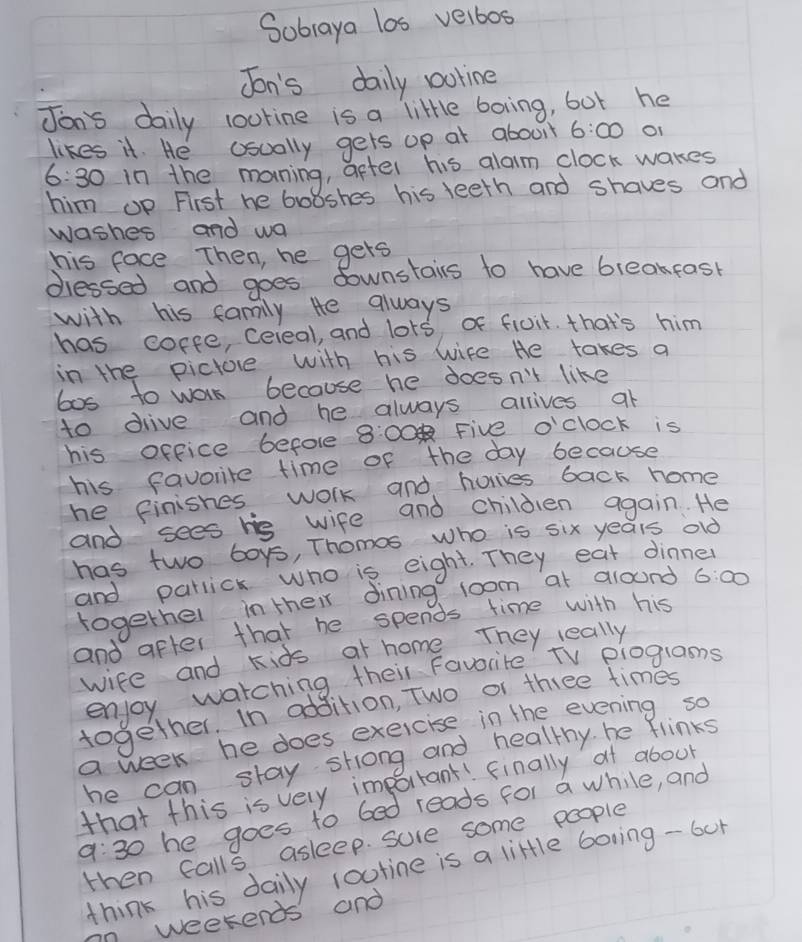 Subraya los verbos
Jon's daily routine
Jon's daily routine is a little boring, but he
likes it. He usually gets up at about 6:00 or
6:30 in the morning, after his alarm clock wakes
him up First he brooshes his teeth and shaves and
washes and wa
his face Then, he gets
dressed and goes downstairs to have breakfast
with his family He always
has coffe, cereal, and lots of fruit. that's him
in the picture with his wife He takes a
bus to work because he doesn't like
to drive and he always arrives at
his office before 8:00 Five o'clock is
his favorite time of the day because
he finishes work and hurries back home
and sees his wife and children again. He
has two boys, Thomas who is six years old
and patrick who is eight. They eat dinner
together in their dining room at around 6:00
and after that he spends time with his
wife and kids at home They really
enjoy watching their Favorite TV programs
together. In addition, Two or three times
a week he does exercise in the evening so
he can stay strong and healthy. he thinks
that this is very important! Finally at about
9:30 he goes to bed reads for a while, and
then falls asleep. sure some people
think his daily routine is a little boring - but
on weekends and